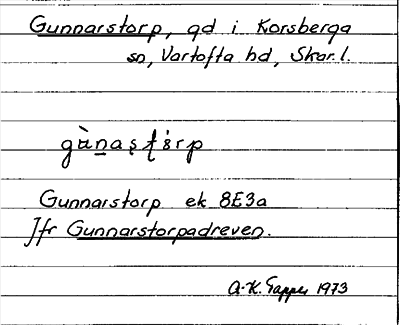 Gunnarstorp, gd i Korsberga
sn, Vartofta hd, Skar. l.
Gunnarstorp ek 8E3a
Jfr Gunnarstorpadreven.
A-K. 1973